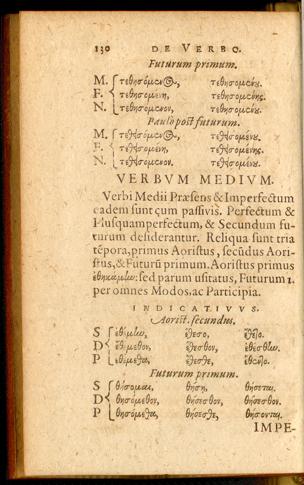 130 DE VERBO.
Futurum primum.
M. τεθησόμενος, τεθησομένου.
F. τεθησομένη, τεθησομένης.
N. τεθησόμενον, τεθησομένου.
Paulò post futurum.
M.
F.
N.
VERBVM MEDIVM.
Verbi Medii Præsens & Imperfectum
eadem sunt cum passivis. Perfectum &
Plusquamperfectum, & Secundum fu-
turum desiderantur. Reliqua sunt tria
tẽpora, primus Aoristus, secũdus Aori-
stus, & Futurũ primum. Aoristus primus
ἐθηκάμην: sed parum usitatus, Futurum 1.
per omnes Modos, ac Participia.
INDICATIVVS.
Aorist. secundus.
S ἐθέμην, ἔθεσο, ἔθετο.
D ἐθέμεθον, ἔθεσθον, ἐθέσθην.
P ἐθέμεθα, ἔθεσθε, ἔθεντο.
Futurum primum.
S θήσομαι, θήσῃ, θήσεται.
D θησόμεθον, θήσεσθον, θήσεσθον.
P θησόμεθα, θήσεσθε, θήσονται.
IMPE-